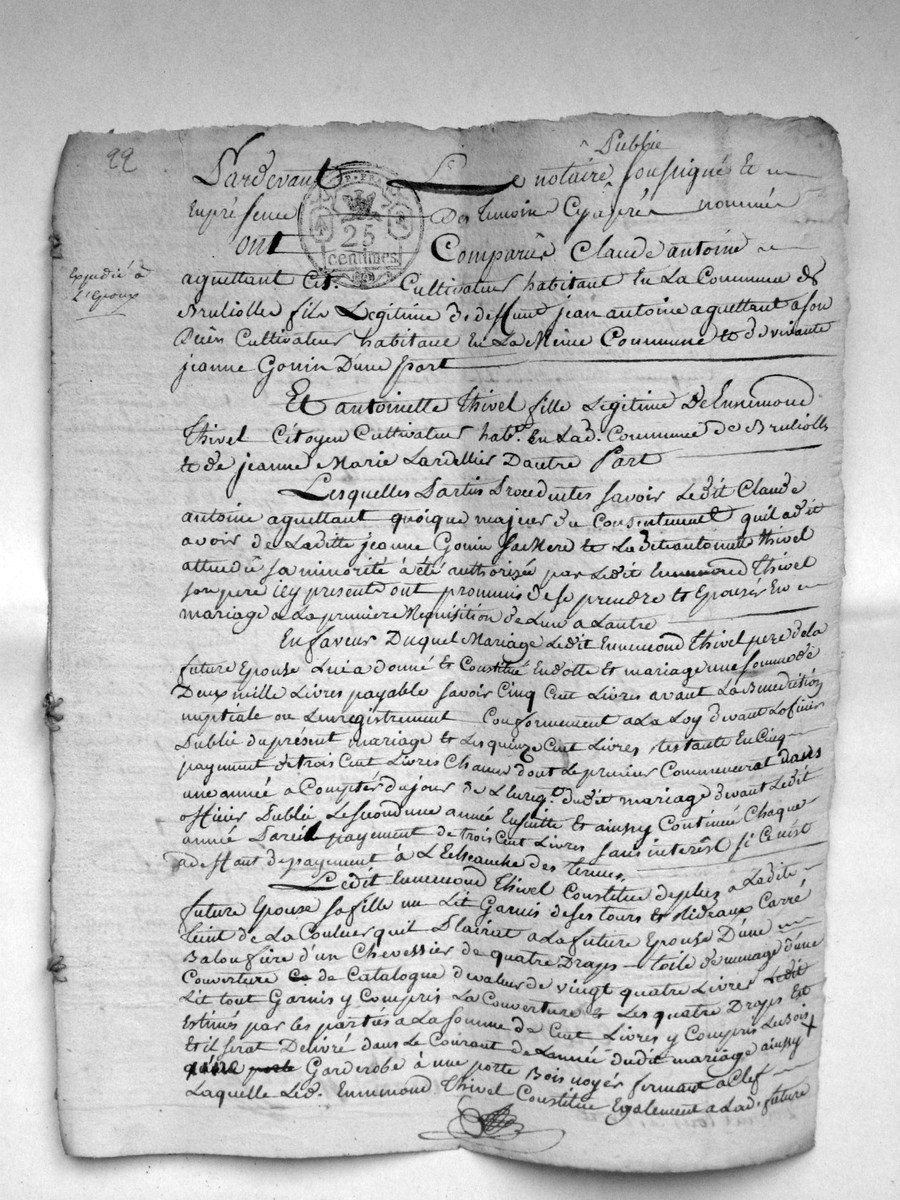 22
Publie
Pardevant Le notaire soussigné et
En présence des temoin Cyaprés nommés
ont Comparûs Claude antoine
25
centimes
Expedié à
L'Epoux
aguettant Cit. Cultivateur habitant En La Commune de
Bruliolle fils Legitime de deffunt jean antoine aguettant a son
vivant Cultivateur habitant En La Même Commune et de vivante
jeanne Gonin D'une part
Et antoinette Thivel fille Legitime De Ennemond
Thivel Citoyen Cultivateur habt. En Lad. Commune de Bruliolle
et de jeanne Marie Lardellier Dautre Part
Lesquelles Parties Procedantes savoir Ledit Claude
antoine aguettant quoique majeur du Consentement quil a dit
avoir de Laditte jeanne Gonin Sa Mere et La ditte antoinette Thivel
attendu sa minorité à été authorisée par Ledit Ennemond Thivel
son pere icy present ont prommis de se prendre et Epouser En
mariage a La premiere Requisition de Lun a Lautre
En faveur Duquel Mariage Ledit Ennemond Thivel pere de la
future Epouse Lui a donné et Constitué En dotte et mariage une somme de
Deux mille Livres payable savoir Cinq Cent Livres avant La Benediction
nuptiale ou Lenregistrement Conformement a La Loy devant Lofficier
Public du présent mariage et Les quinze Cent Livres restante En Cinq
payement de trois Cent Livres Chacun dont Le premier Commencerat dans
une année à Compter du jour de L'enregt. dudit mariage devant Ledit
officier Public Le second une année Ensuitte et ainssy Continué Chaque
année Pareil payement de trois Cent Livres sans interêst si Ce n'est
a deffaut de payement à L'Echeanche des termes.
Ledit Ennemond Thivel Constitue de plus a Ladite
future Epouse sa fille un Lit Garnis de ses tours et Rideaux Carré
teint de La Couleur quil Plairat a La future Epouse D'une
Balouffiere d'un Chevessier de quatre Draps toile de menage d'une
Couverture de Catalogue de valeur de vingt quatre Livres Ledit
Lit tout Garnis y Compris La Couverture et Les quatre Draps Est
Estimés par les parties a La somme de Cent Livres y Compris Le Bois
Et il serat Delivré dans Le Courant de L'année dudit mariage ainssy
Garderobe à une porte Bois noyer fermant a Clef
Laquelle Led. Ennemond Thivel Constitue Egalement a Lad. future